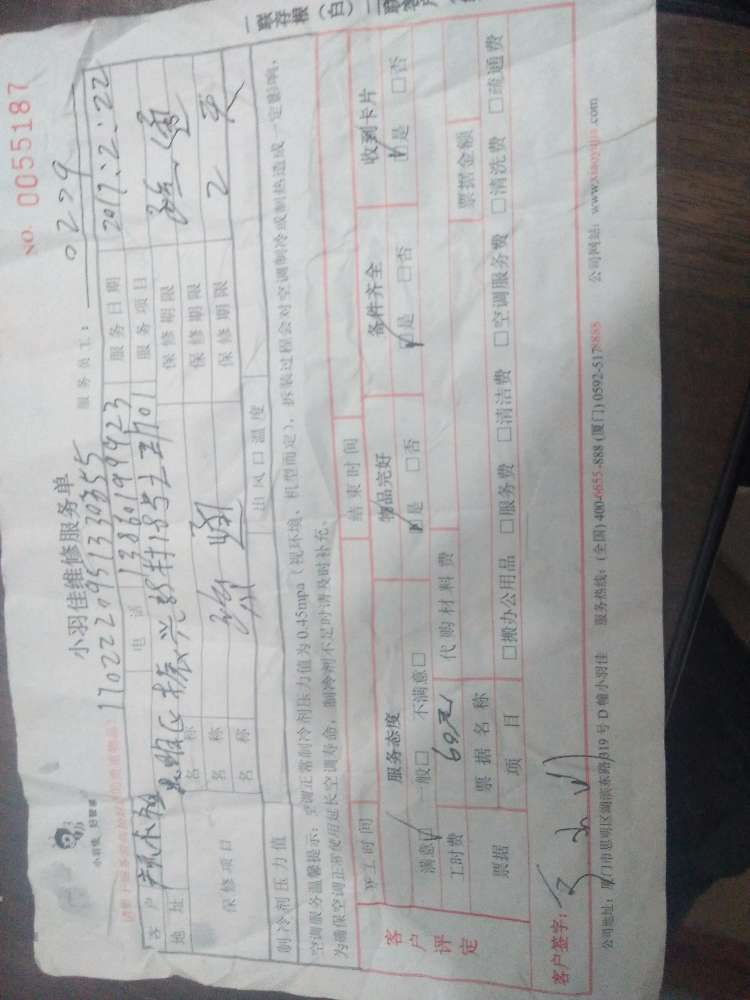 一联存根(白)二联
NO. 0055187
小羽佳 好管家
小羽佳维修服务单
服务员工: 0209
1702220951330355
客户
电话 13860199923
服务日期 2017.2.22
地址 思明区振兴新村185号之701
服务项目
保修项目
名称
保修期限
名称
保修期限
名称
保修期限 2 天
制冷剂压力值
出风口温度
空调服务温馨提示:空调正常制冷剂压力值为0.45mpa(视环境、机型而定),拆装过程会对空调制冷或制热造成一定影响,
为确保空调正常使用延长空调寿命,制冷剂不足时请及时补充。
客户评定
开工时间
结束时间
服务态度
物品完好
备件齐全
收到卡片
满意□ 一般□ 不满意□
□是 □否
□是 □否
□是 □否
工时费 60元
代购材料费
票据金额
票据
票据名称
项目
□搬办公用品 □服务费 □清洁费 □空调服务费 □清洗费 □疏通费
客户签字:
公司地址:厦门市思明区湖滨东路319号D幢小羽佳 服务热线:(全国)400-6655-888 (厦门)0592-5178888 公司网站:www.xiaoyujia.com